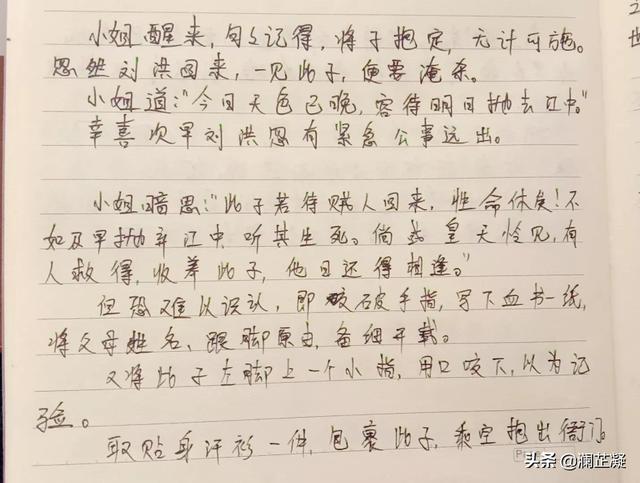 小姐醒来，句句记得，将子抱定，无计可施。
忽然刘洪回来，一见此子，便要淹杀。
小姐道："今日天色已晚，容待明日抛去江中。"
幸喜次早刘洪忽有紧急公事远出。
小姐暗思："此子若待贼人回来，性命休矣！不
如及早抛弃江中，听其生死。倘或皇天怜见，有
人救得，收养此子，他日还得相逢。"
但恐难以识认，即咬破手指，写下血书一纸，
将父母姓名、跟脚原由，备细开载。
又将此子左脚上一个小指，用口咬下，以为记
验。
取贴身汗衫一件，包裹此子，乘空抱出衙门。
头条 @澜芷凝